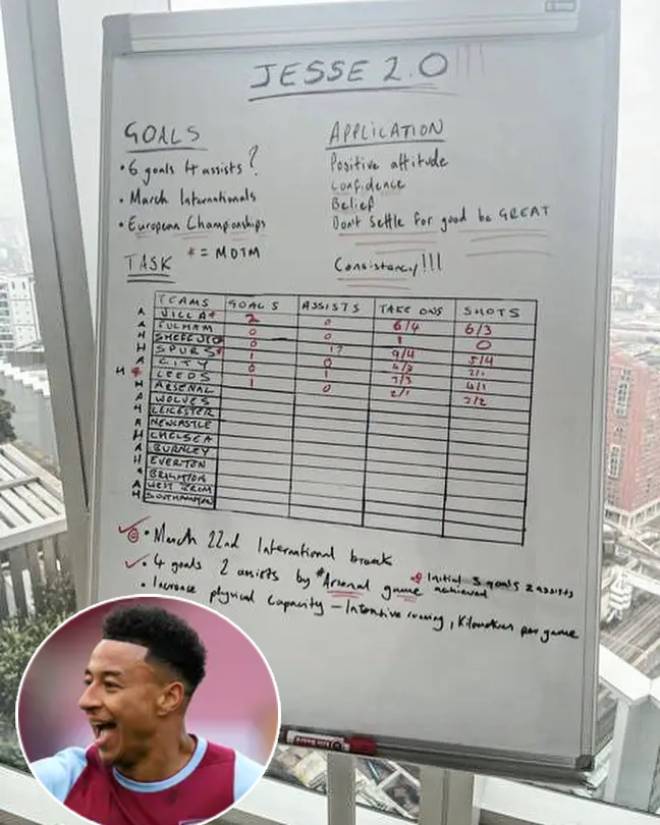 JESSE 2.0 !!!
GOALS
• 6 goals 4 assists ?
• March Internationals
• European Championships
* = MOTM
APPLICATION
Positive attitude
Confidence
Belief
Dont Settle for good be GREAT
Consistency!!!
TASK
TEAMS GOALS ASSISTS TAKE ONS SHOTS
A VILLA* 2 0 6/4 6/3
A FULHAM 0 0 1 0
H SHEFF UTD 0
H SPURS* 1 1? 9/4 5/4
A CITY 1 0
H * LEEDS 1 7/3 4/1
H ARSENAL 1 0 2/1 2/2
A WOLVES
H LEICESTER
A NEWCASTLE
H CHELSEA
A BURNLEY
H EVERTON
BRIGHTON
A WEST BROM
H SOUTHAMPTON
• March 22nd International break
• 4 goals 2 assists by *Arsenal game
Initial 3 goals 2 assists achieved
• Increase physical capacity – Intensive running, Kilometres per game